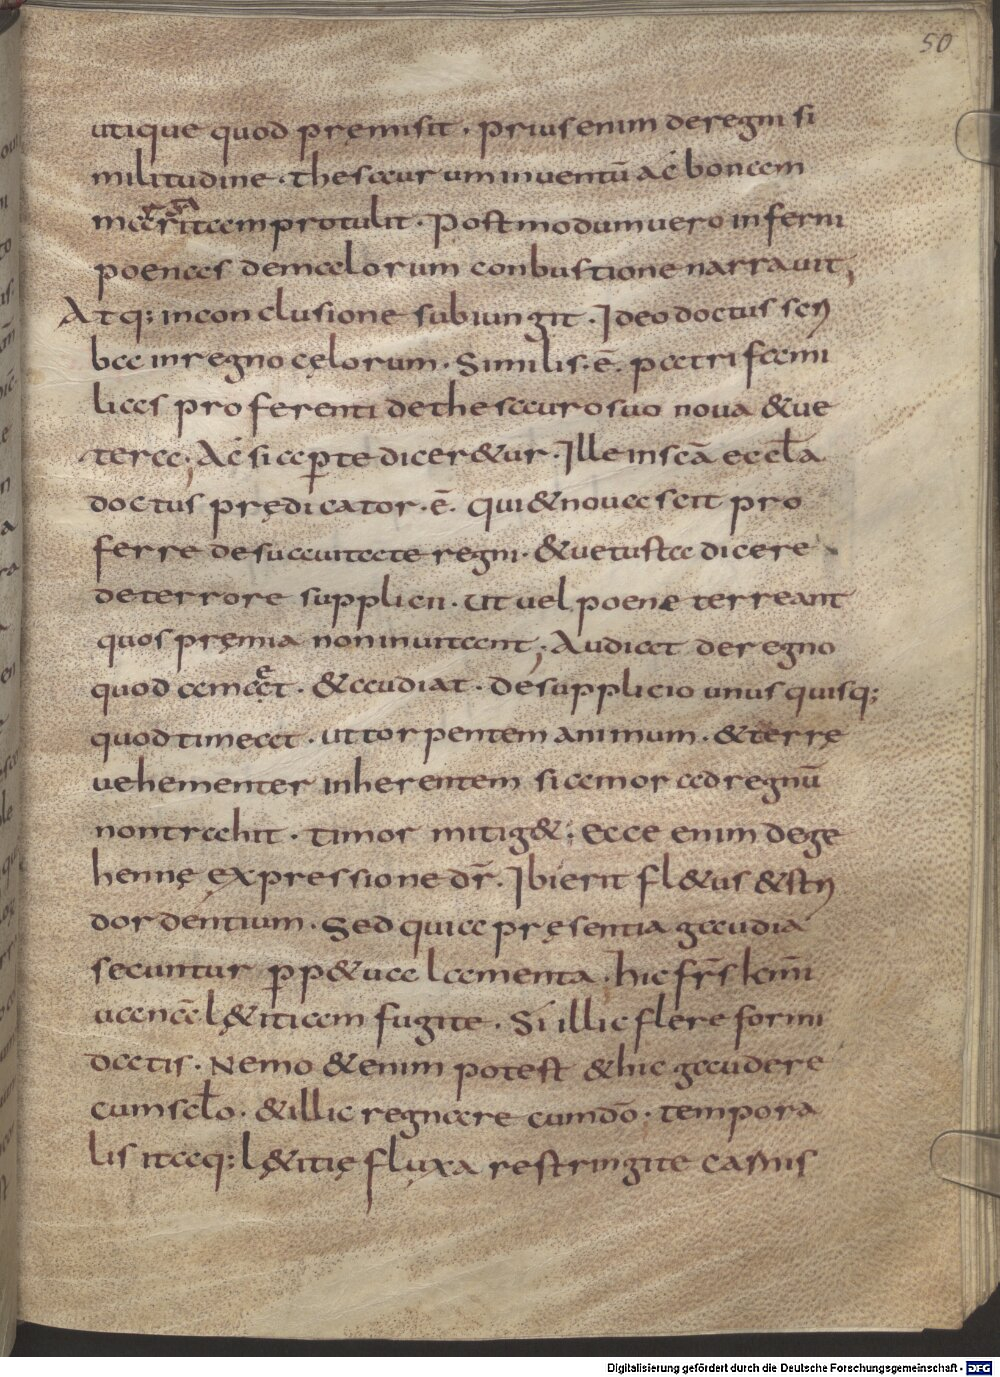 50
utique quod pręmisit . prius enim de regni si
militudine . thesaurum inuentū ac bonam
margaritam protulit . Postmodum uero inferni
poenas de malorum conbustione narrauit ;
Atq; in conclusione subiungit . Ideo doctus scri
ba in regno cęlorum . Similis . ē . patri fami
lias proferenti de thesauro suo noua & ue
tera ; Ac si aperte dicer&ur . Ille in scā eccła
doctus prędicator . ē . qui & noua scit pro
ferre de suauitate regni . & uetusta dicere
de terrore supplicii . ut uel poenę terreant
quos pręmia non inuitant ; Audiat de regno
quod amaet . & audiat . de supplicio unusquisq;
quod timeat . ut torpentem animum . & terrę
uehementer inherentem si amor ad regnū
non trahit . timor mitig& ; ecce enim de ge
hennę expressione dr̄ . Ibi erit fl&us & stri
dor dentium . Sed quia pręsentia gaudia
secuntur perp&ua lamenta . hic frs̄ kmi
uanā lę&itiam fugite . Si illic flere formi
datis . Nemo &enim potest & hic gaudere
cum sclo . & illic regnare cum dō . tempora
lis itaq; lę&itię fluxa restringite carnis
Digitalisierung gefördert durch die Deutsche Forschungsgemeinschaft - DFG